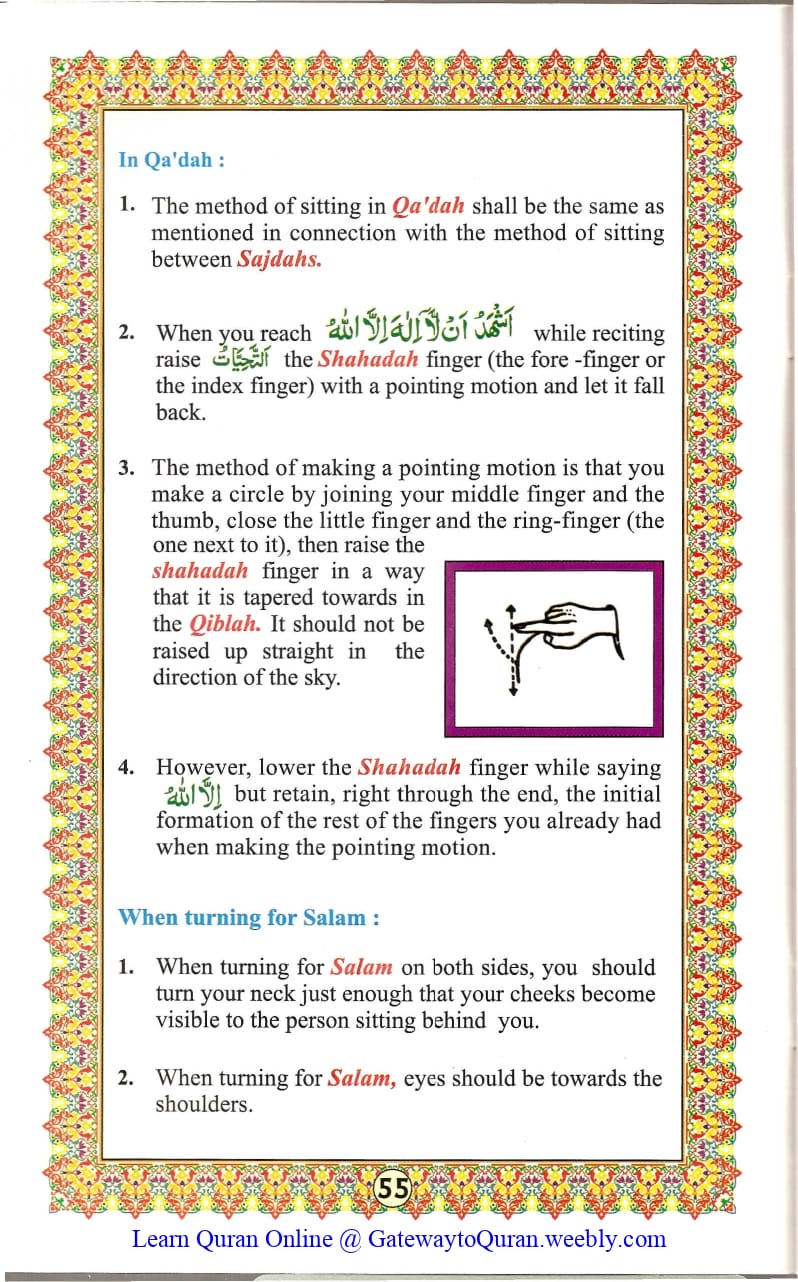 In Qa'dah :
1. The method of sitting in Qa'dah shall be the same as
mentioned in connection with the method of sitting
between Sajdahs.
2. When you reach اَشْهَدُ اَنْ لَّاۤ اِلٰهَ اِلَّا اللّٰهُ while reciting
raise اَلتَّحِيَّاتُ the Shahadah finger (the fore -finger or
the index finger) with a pointing motion and let it fall
back.
3. The method of making a pointing motion is that you
make a circle by joining your middle finger and the
thumb, close the little finger and the ring-finger (the
one next to it), then raise the
shahadah finger in a way
that it is tapered towards in
the Qiblah. It should not be
raised up straight in the
direction of the sky.
4. However, lower the Shahadah finger while saying
اِلَّا اللّٰهُ but retain, right through the end, the initial
formation of the rest of the fingers you already had
when making the pointing motion.
When turning for Salam :
1. When turning for Salam on both sides, you should
turn your neck just enough that your cheeks become
visible to the person sitting behind you.
2. When turning for Salam, eyes should be towards the
shoulders.
55
Learn Quran Online @ GatewaytoQuran.weebly.com